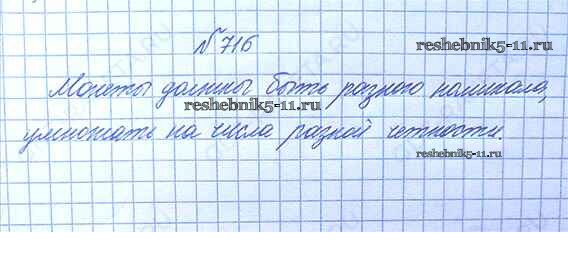 №716
reshebnik5-11.ru
Монеты должны быть разного номинала,
reshebnik5-11.ru
умножать на числа разной четности.
reshebnik5-11.ru